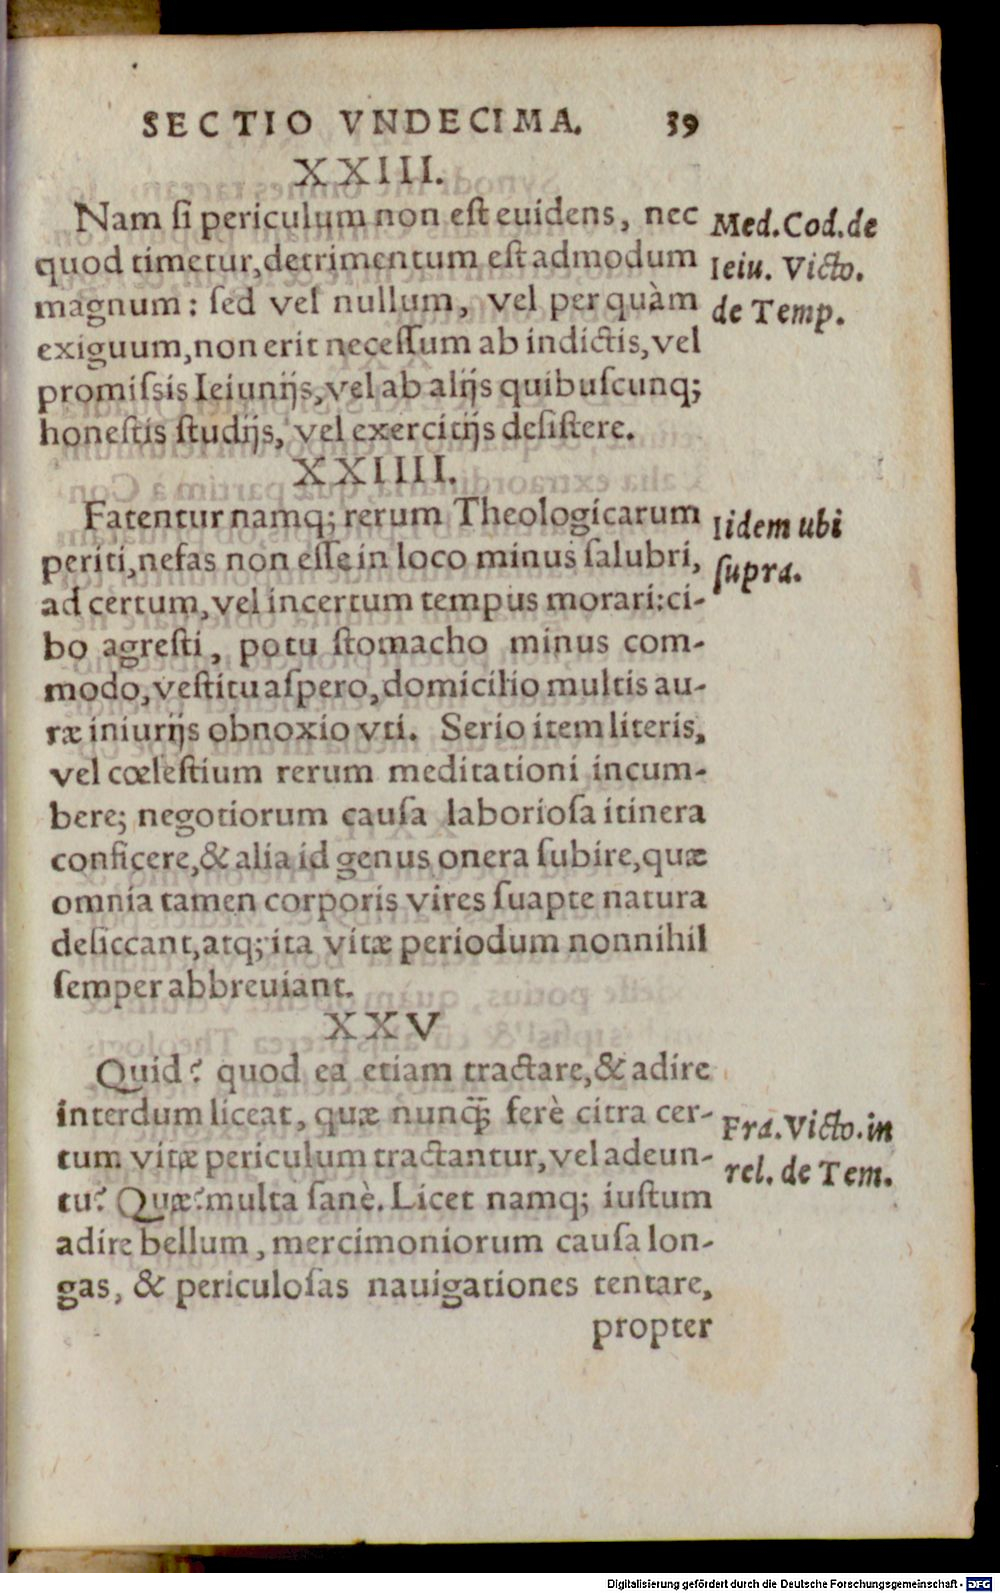 SECTIO VNDECIMA. 39
XXIII.
Nam ſi periculum non eſt euidens, nec
quod timetur, detrimentum eſt admodum
magnum: ſed vel nullum, vel perquàm
exiguum, non erit neceſſum ab indictis, vel
promiſsis Ieiunijs, vel ab alijs quibuſcunq;
honeſtis ſtudijs, vel exercitijs deſiſtere.
Med. Cod. de
Ieiu. Victo.
de Temp.
XXIIII.
Fatentur namq; rerum Theologicarum
periti, nefas non eſſe in loco minus ſalubri,
ad certum, vel incertum tempus morari: ci-
bo agreſti, potu ſtomacho minus com-
modo, veſtitu aſpero, domicilio multis au-
ræ iniurijs obnoxio vti. Serio item literis,
vel cœleſtium rerum meditationi incum-
bere; negotiorum cauſa laborioſa itinera
conficere, & alia id genus onera ſubire, quæ
omnia tamen corporis vires ſuapte natura
deſiccant, atq; ita vitæ periodum nonnihil
ſemper abbreuiant.
Iidem ubi
ſupra.
XXV
Quid? quod ea etiam tractare, & adire
interdum liceat, quæ nunq̃; ferè citra cer-
tum vitæ periculum tractantur, vel adeun-
tu? Quæ? multa ſanè. Licet namq; iuſtum
adire bellum, mercimoniorum cauſa lon-
gas, & periculoſas nauigationes tentare,
propter
Fra. Victo. in
rel. de Tem.
Digitalisierung gefördert durch die Deutsche Forschungsgemeinschaft - DFG